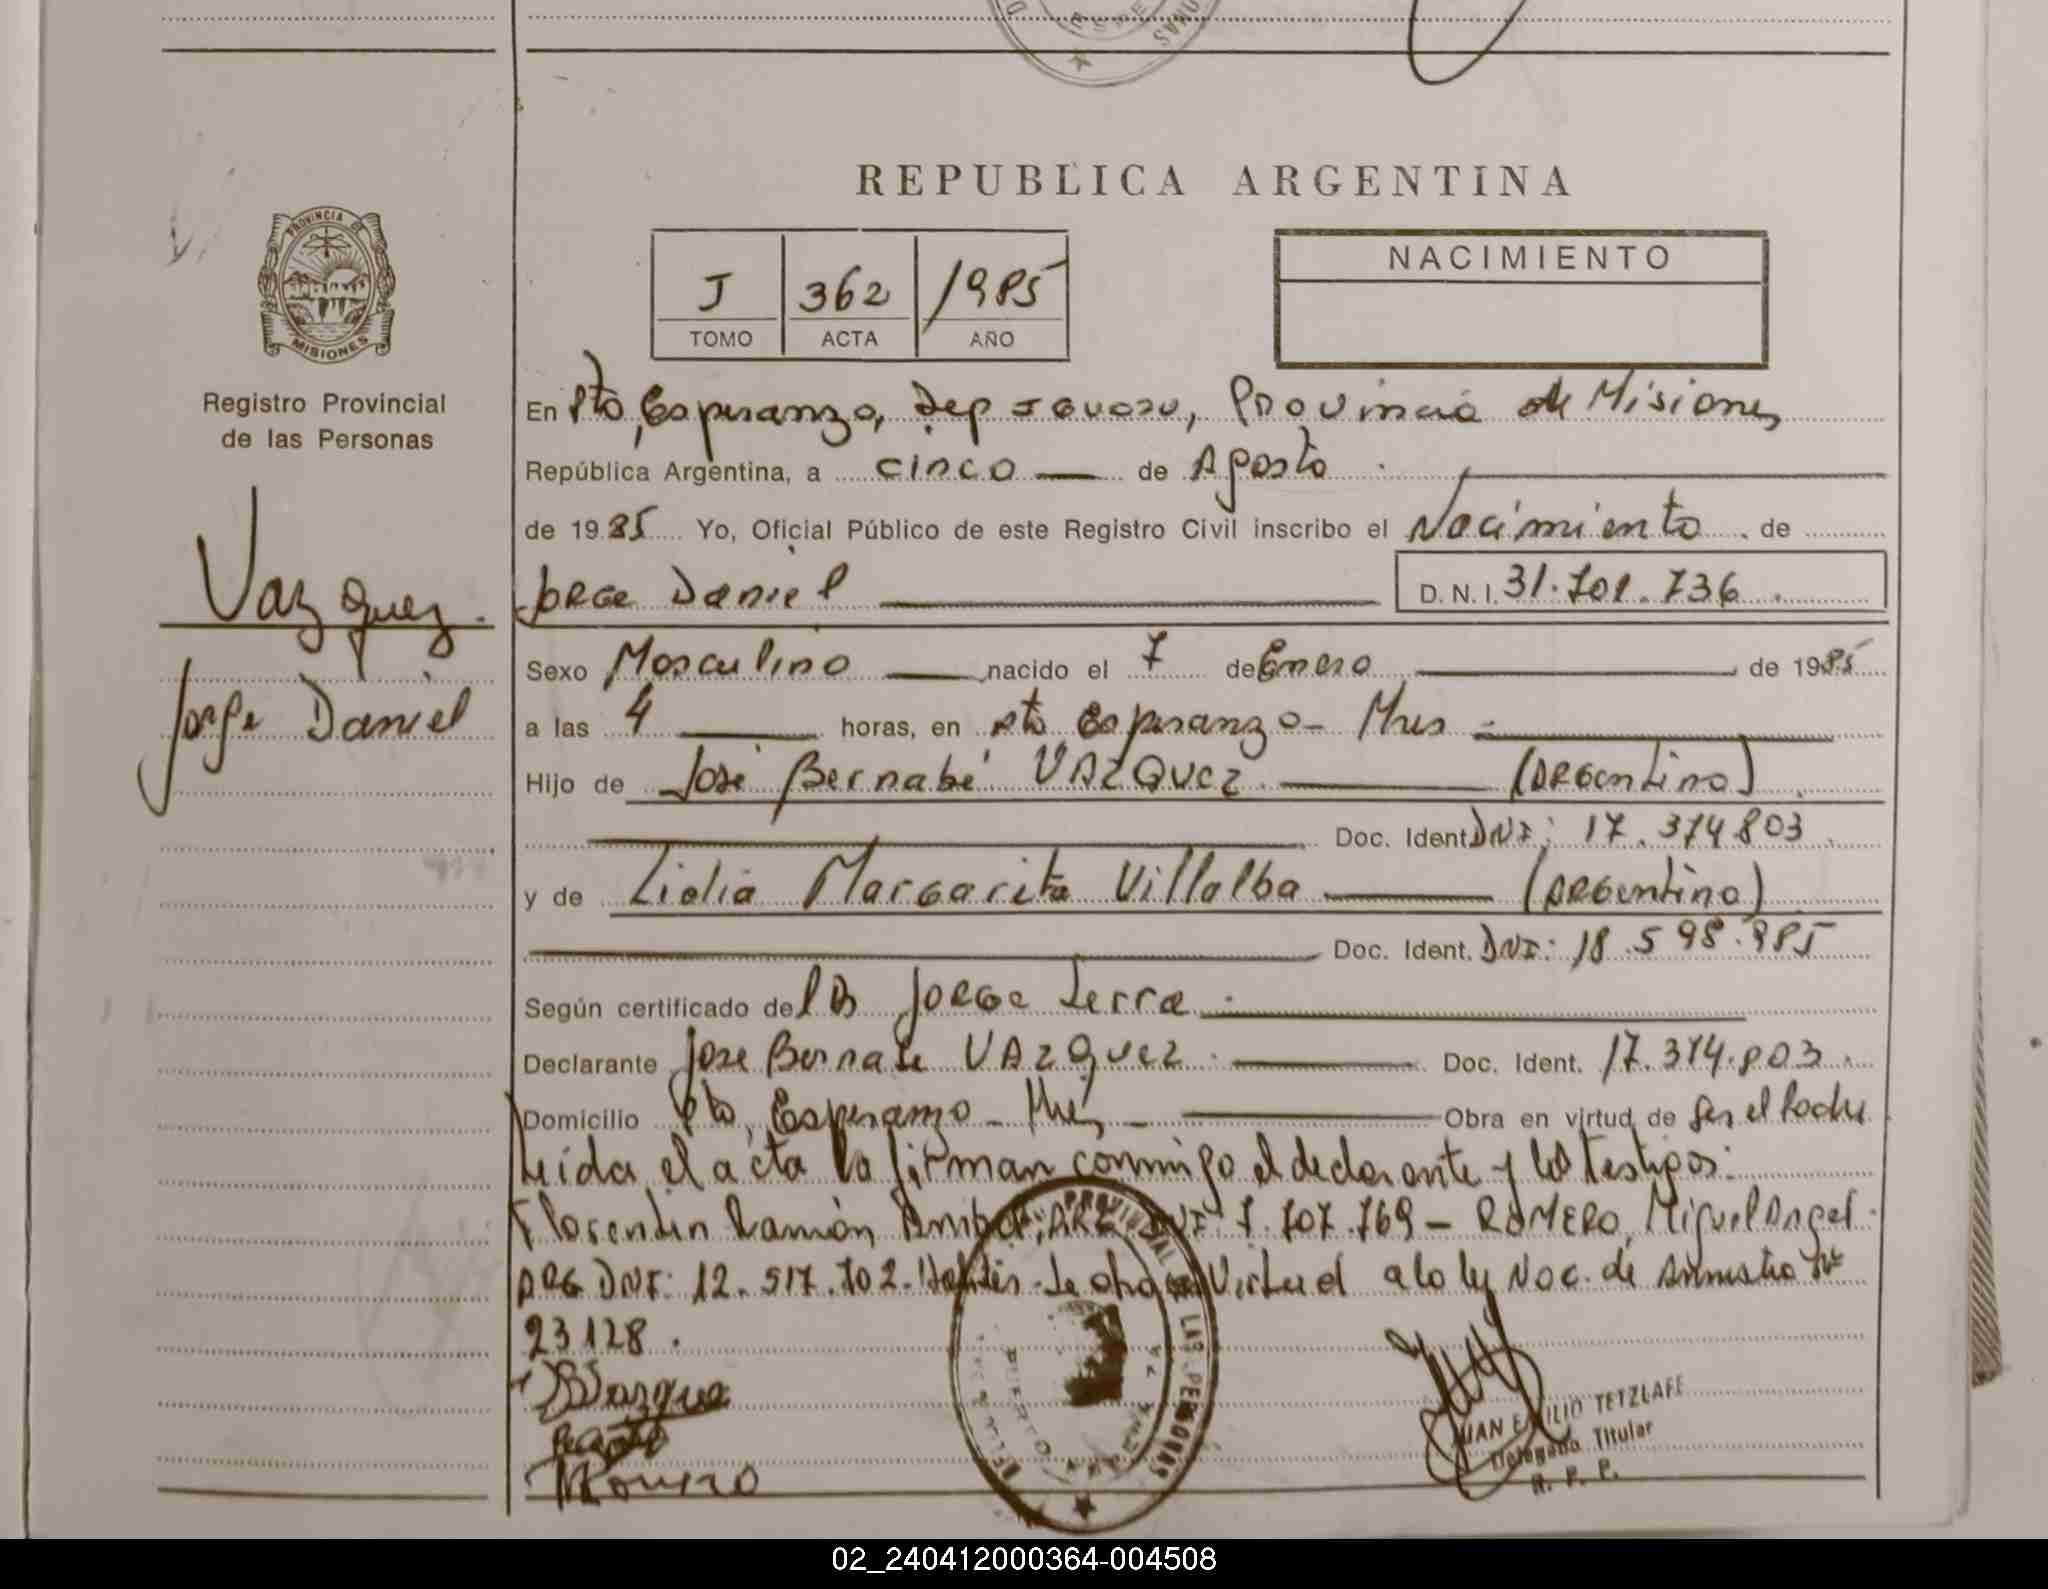 REPUBLICA ARGENTINA
PROVINCIA DE
MISIONES
Registro Provincial
de las Personas
J 362 1985
TOMO ACTA AÑO
NACIMIENTO
En Pto, Esperanza, Dep Iguazu, Provincia de Misiones
República Argentina, a cinco de Agosto
de 1985 Yo, Oficial Público de este Registro Civil inscribo el Nacimiento de
Vazquez.
Jorge Daniel
Jorge Daniel D.N.I. 31.701.736
Sexo Masculino nacido el 7 de Enero de 1985
a las 4 horas, en Pto Esperanza - Mnes
Hijo de José Bernabé VAZQUEZ (Argentino)
Doc. Ident. DNI: 17.374803
y de Lidia Margarita Villalba (Argentina)
Doc. Ident. DNI: 18.598.985
Según certificado de Jorge Serra
Declarante Jose Bernabe VAZQUEZ Doc. Ident. 17.374.803
Domicilio Pto, Esperanza - Mnes Obra en virtud de ser el Padre
Leida el acta la firman conmigo el declarante y los testigos:
Florentin Ramón ARG DNI: 7.707.769 - ROMERO, Miguel Angel
ARG DNI: 12.517.702 - Se obra en Virtud a la ley Nac. de Amnistia Nº
23128.
JBVazquez
Romero
JUAN EMILIO TETZLAFF
Delegado Titular
R. P. P.
PROVINCIAL DE LAS PERSONAS
PUERTO ESPERANZA
02_240412000364-004508